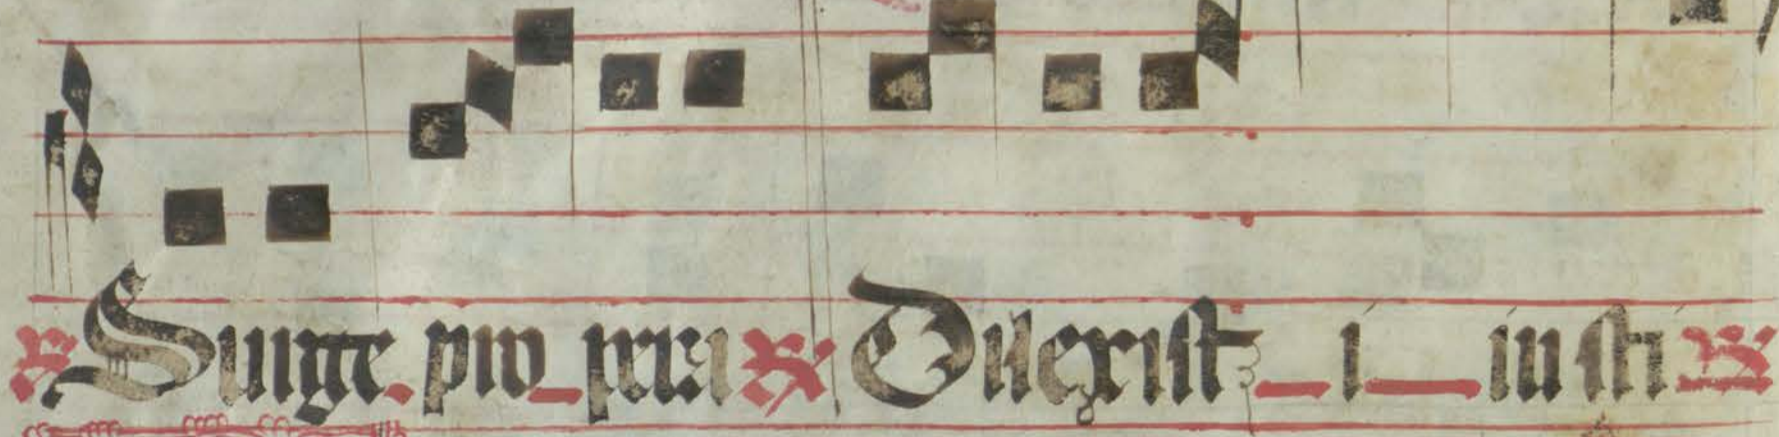 ℟ Surge. pro_pera ℟ Dilexist_i_iusti ℟